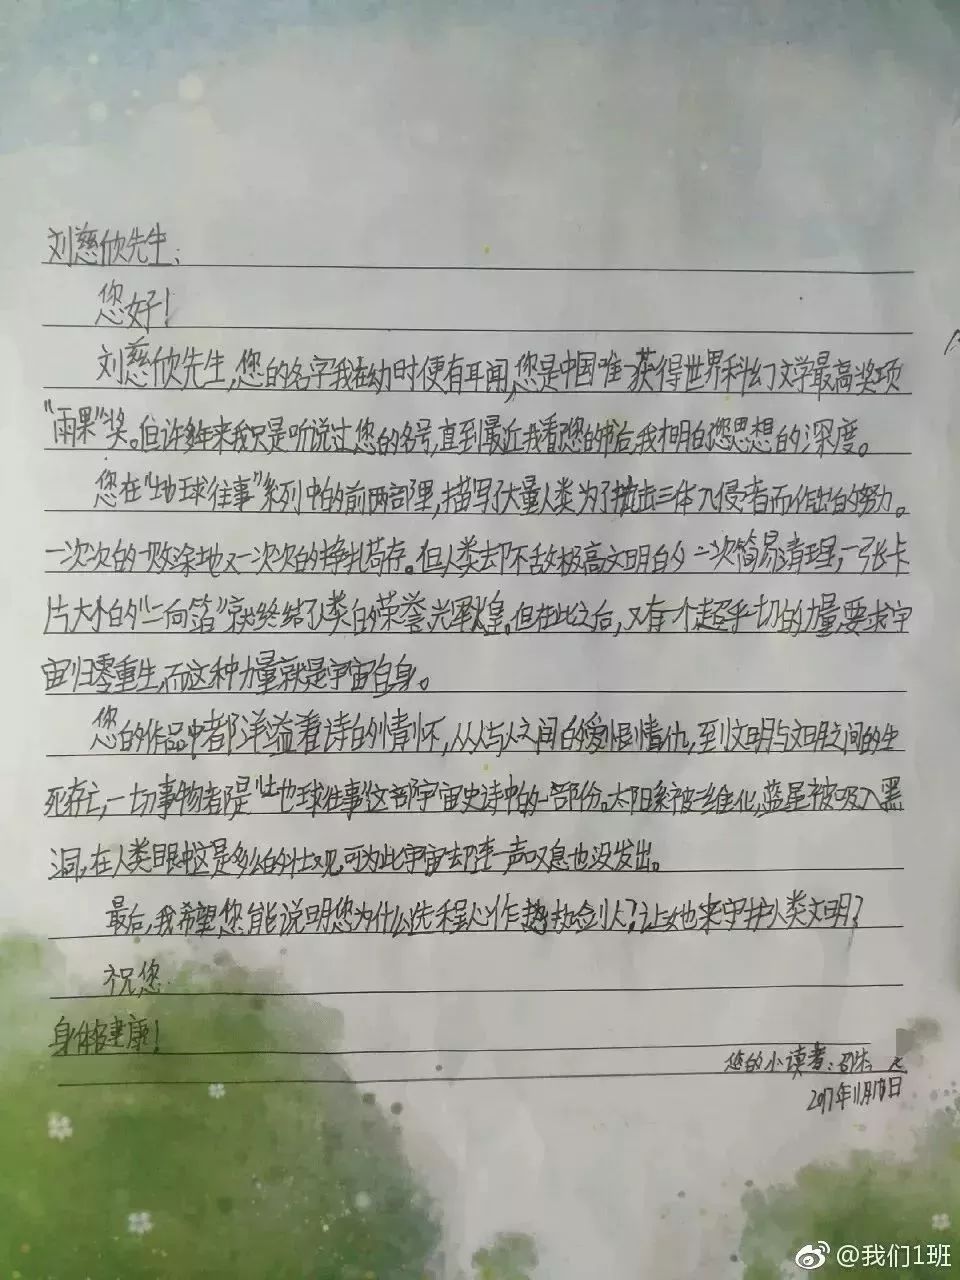 刘慈欣先生:
您好!
刘慈欣先生,您的名字我在幼时便有耳闻,您是中国唯一获得世界科幻文学最高奖项
"雨果"奖。但许多年来我只是听说过您的名号,直到最近我看您的书后,我才明白您思想的深度。
您在"地球往事"系列中的前两部里,描写了大量人类为了抗击三体入侵者而作出的努力。
一次次的一败涂地又一次次的挣扎苟存。但人类却不敌极高文明的一次简易清理,一张卡
片大小的"二向箔"就终结了人类的荣誉光辉煌。但在此之后,又有一个超乎一切的力量要求宇
宙归零重生,而这种力量就是宇宙自身。
您的作品中都洋溢着诗的情怀,从人与人之间的爱恨情仇,到文明与文明之间的生
死存亡,一切事物都是"地球往事"这部宇宙史诗中的一部份。太阳系被二维化,蓝星被吸入黑
洞,在人类眼中这是多么的壮观,可为此宇宙却连一声叹息也没发出。
最后,我希望您能说明您为什么选程心作为执剑人?让她来守护人类文明?
祝您
身体健康!
您的小读者:
2017年11月
@我们1班